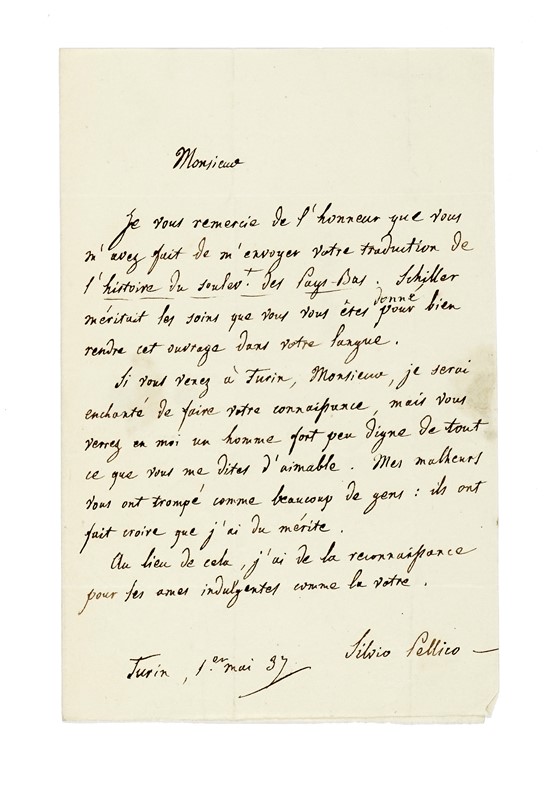 Monsieur
Je vous remercie de l'honneur que vous
m'avez fait de m'envoyer votre traduction de
l'histoire du soulevt. des Pays-Bas. Schiller
méritait les soins que vous vous êtes donné pour bien
rendre cet ouvrage dans votre langue.
Si vous venez à Turin, Monsieur, je serai
enchanté de faire votre connaissance, mais vous
verrez en moi un homme fort peu digne de tout
ce que vous me dites d'aimable. Mes malheurs
vous ont trompé comme beaucoup de gens: ils ont
fait croire que j'ai du mérite.
Au lieu de cela, j'ai de la reconnaissance
pour les ames indulgentes comme la votre.
Silvio Pellico
Turin, 1.er mai 37